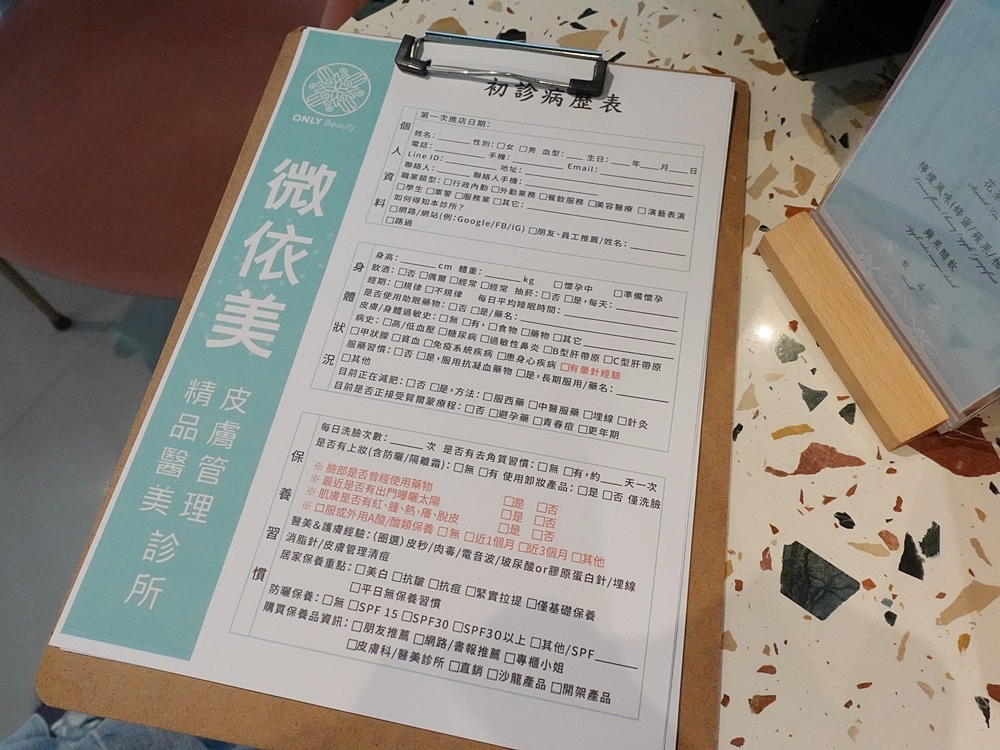 ONLY Beauty
微依美
皮膚管理
精品醫美 診所
初診病歷表
個人資料
第一次進店日期：
姓名：______ 性別：□女 □男 血型：___ 生日：___年___月___日
電話：______ 手機：______ Email：______
Line ID：______ 地址：______
聯絡人：______ 聯絡人手機：______
職業類型：□行政內勤 □外勤業務 □餐飲服務 □美容醫療 □演藝表演
□學生 □軍警 □服務業 □其它：______
如何得知本診所？
□網路/網站(例:Google/FB/IG) □朋友、員工推薦/姓名：______
□路過
身體狀況
身高：______cm 體重：______kg □懷孕中 □準備懷孕
飲酒：□否 □偶爾 □經常 □經常 抽菸：□否 □是,每天：______
經期：□規律 □不規律 每日平均睡眠時間：______
是否使用助眠藥物：□否 □是/藥名：______
皮膚/身體過敏史：□無 □有,□食物 □藥物 □其它______
病史：□高/低血壓 □糖尿病 □過敏性鼻炎 □B型肝帶原 □C型肝帶原
□甲狀腺 □貧血 □免疫系統疾病 □患身心疾病 □有暈針經驗
服藥習慣：□否 □是,服用抗凝血藥物 □是,長期服用/藥名：______
□其他
目前正在減肥：□否 □是,方法：□服西藥 □中醫服藥 □埋線 □針灸
目前是否正接受賀爾蒙療程：□否 □避孕藥 □青春痘 □更年期
保養習慣
每日洗臉次數：______次 是否有去角質習慣：□無 □有,約___天一次
是否有上妝(含防曬/隔離霜)：□無 □有 使用卸妝產品：□是 □否 僅洗臉
※ 臉部是否曾經使用藥物 □是 □否
※ 最近是否有出門曝曬太陽 □是 □否
※ 肌膚是否有紅、腫、熱、癢、脫皮 □是 □否
※ 口服或外用A酸/酸類保養 □無 □近1個月 □近3個月 □其他
醫美&護膚經驗：(圈選) 皮秒/肉毒/電音波/玻尿酸or膠原蛋白針/埋線
消脂針/皮膚管理清痘
居家保養重點：□美白 □抗皺 □抗痘 □緊實拉提 □僅基礎保養
□平日無保養習慣
防曬保養：□無 □SPF 15 □SPF30 □SPF30以上 □其他/SPF______
購買保養品資訊：□朋友推薦 □網路/書報推薦 □專櫃小姐
□皮膚科/醫美診所 □直銷 □沙龍產品 □開架產品
檸檬風味(蜂蜜/蘋果/柚
蘋果醋飲